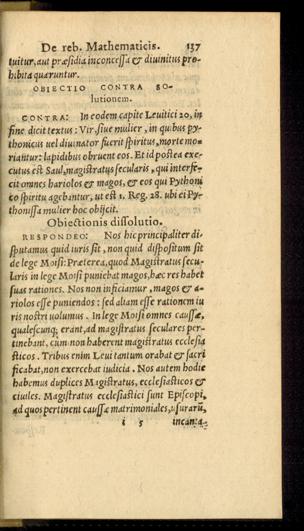 De reb. Mathematicis. 137
tuitur, aut præsidia inconcessa & diuinitus pro-
hibita quæruntur.
OBIECTIO CONTRA SO-
lutionem.
CONTRA: In eodem capite Leuitici 20, in
fine dicit textus: Vir, siue mulier, in quibus py-
thonicus vel diuinator fuerit spiritus, morte mo-
riantur: lapidibus obruent eos. Et id postea exe-
cutus est Saul, magistratus secularis, qui interfe-
cit omnes hariolos & magos, & eos qui Pythoni
co spiritu agebantur, ut est 1. Reg. 28. ubi ei Py-
thonissa mulier hoc obijcit.
Obiectionis dissolutio.
RESPONDEO: Nos hic principaliter di-
sputamus quid iuris sit, non quid dispositum sit
de lege Moisi: Præterea, quod Magistratus secu-
laris in lege Moisi puniebat magos, hæc res habet
suas rationes. Nos non inficiamur, magos & a-
riolos esse puniendos: sed aliam esse rationem iu
ris nostri volumus. In lege Moisi omnes caussæ,
qualescunq; erant, ad magistratus seculares per-
tinebant, cum non haberent magistratus ecclesia
sticos. Tribus enim Leui tantum orabat & sacri
ficabat, non exercebat iudicia. Nos autem hodie
habemus duplices Magistratus, ecclesiasticos &
ciuiles. Magistratus ecclesiastici sunt Episcopi,
ad quos pertinent caussæ matrimoniales, usurarũ,
i 5 incanta-